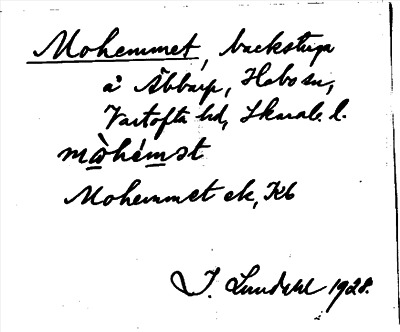 Mohemmet, backstuga
å Åbbarp, Habo sn,
Vartofta hd, Skarab. l.
mòhém̲ət
Mohemmet ek, Kb
I. Lundahl 1928.